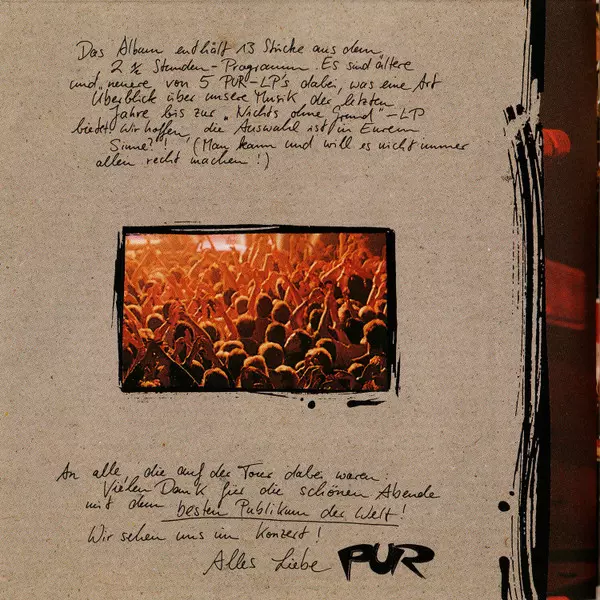 Das Album enthält 13 Stücke aus dem
2 ½ Stunden-Programm. Es sind ältere
und neuere von 5 PUR-LP's dabei, was eine Art
Überblick über unsere Musik der letzten
Jahre bis zur „Nichts ohne Grund"-LP
bietet. Wir hoffen, die Auswahl ist in Eurem
Sinne?! (Man kann und will es nicht immer
allen recht machen!)
An alle, die auf der Tour dabei waren
Vielen Dank für die schönen Abende
mit dem besten Publikum der Welt!
Wir sehen uns im Konzert!
Alles Liebe PUR